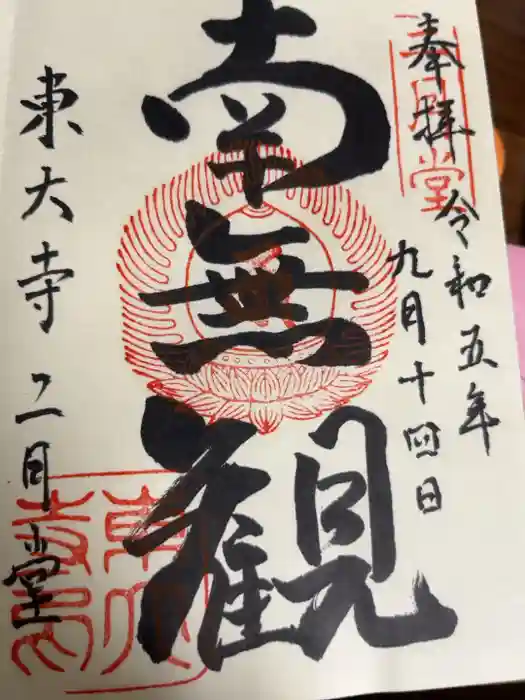 奉拝
令和五年
九月十四日
南無観
東大寺 二月堂